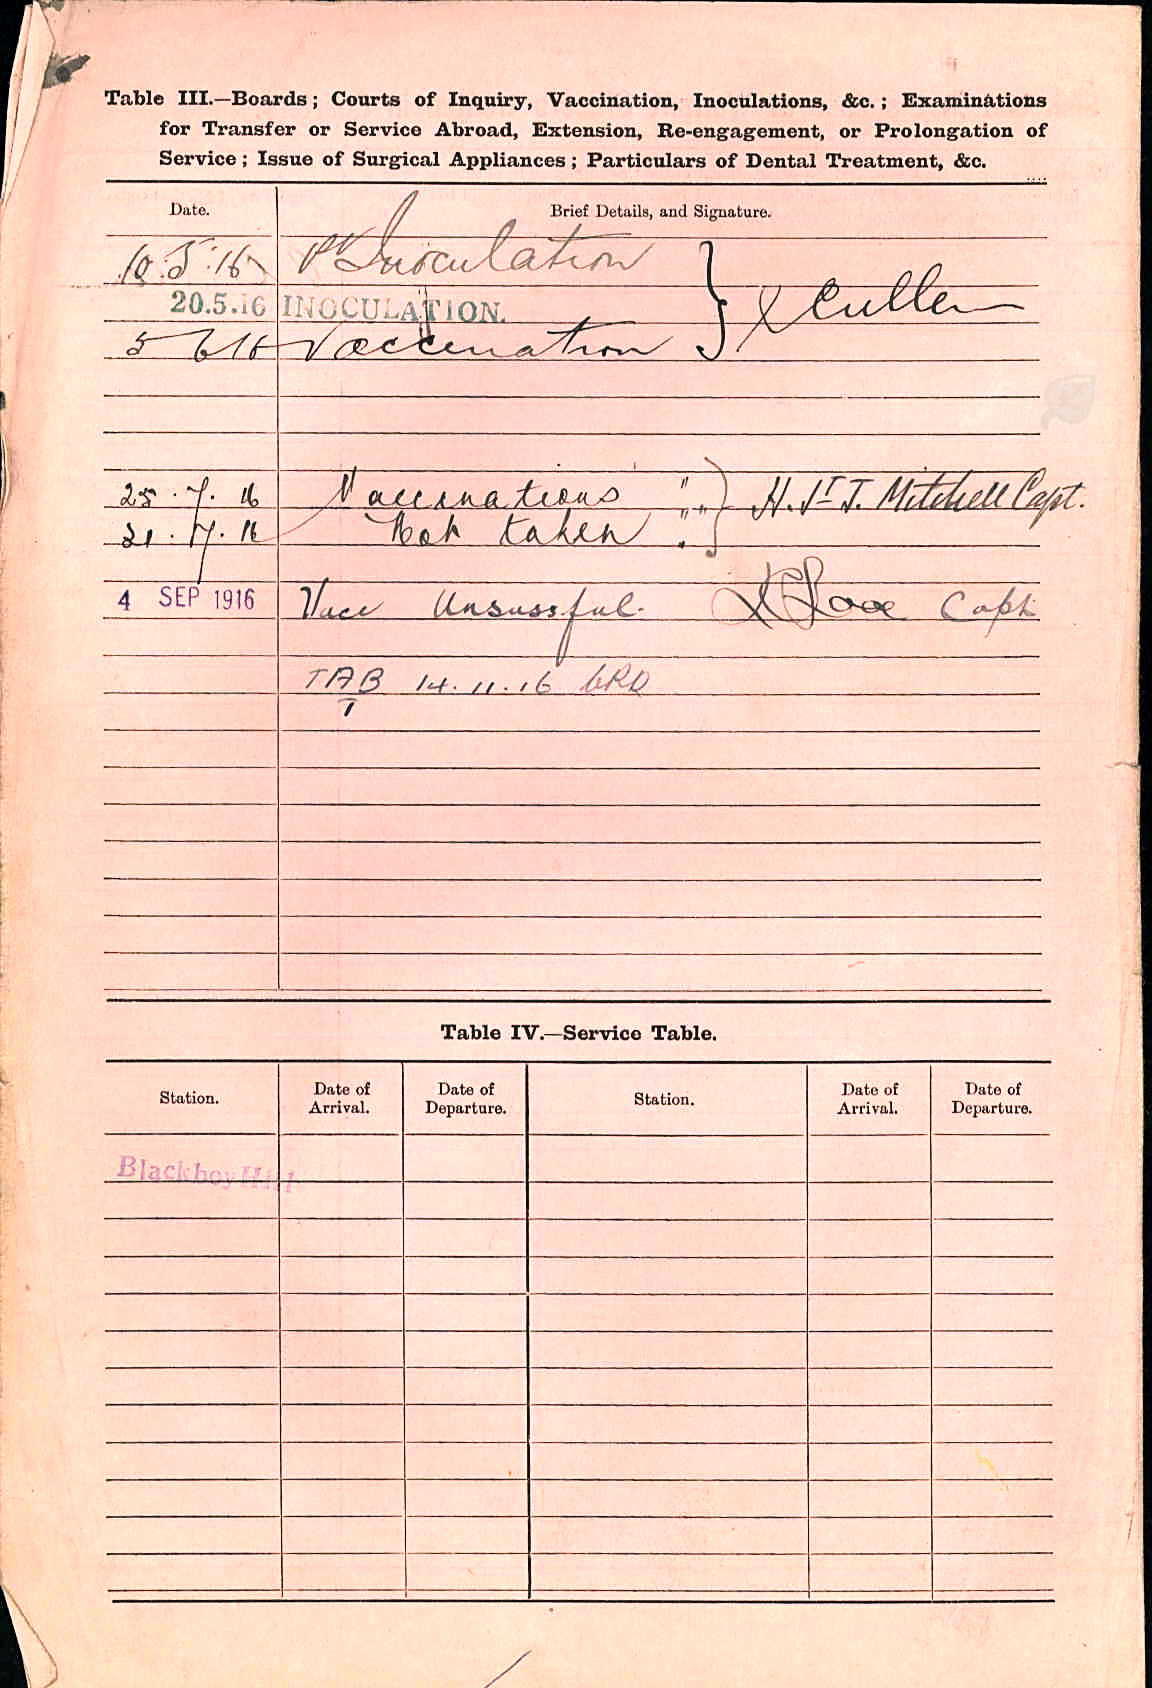 Table III.—Boards; Courts of Inquiry, Vaccination, Inoculations, &c.; Examinations
for Transfer or Service Abroad, Extension, Re-engagement, or Prolongation of
Service; Issue of Surgical Appliances; Particulars of Dental Treatment, &c.
Date. Brief Details, and Signature.
10.5.16 Inoculation
20.5.16 INOCULATION. Cullen
5 6 16 Vaccination
25.7.16 Vaccinations " " H. St J. Mitchell Capt.
31.7.16 Not taken " "
4 SEP 1916 Vacc Unsussful. Capt
TAB 14.11.16
T
Table IV.—Service Table.
Station. Date of Arrival. Date of Departure. Station. Date of Arrival. Date of Departure.
Blackboy Hill